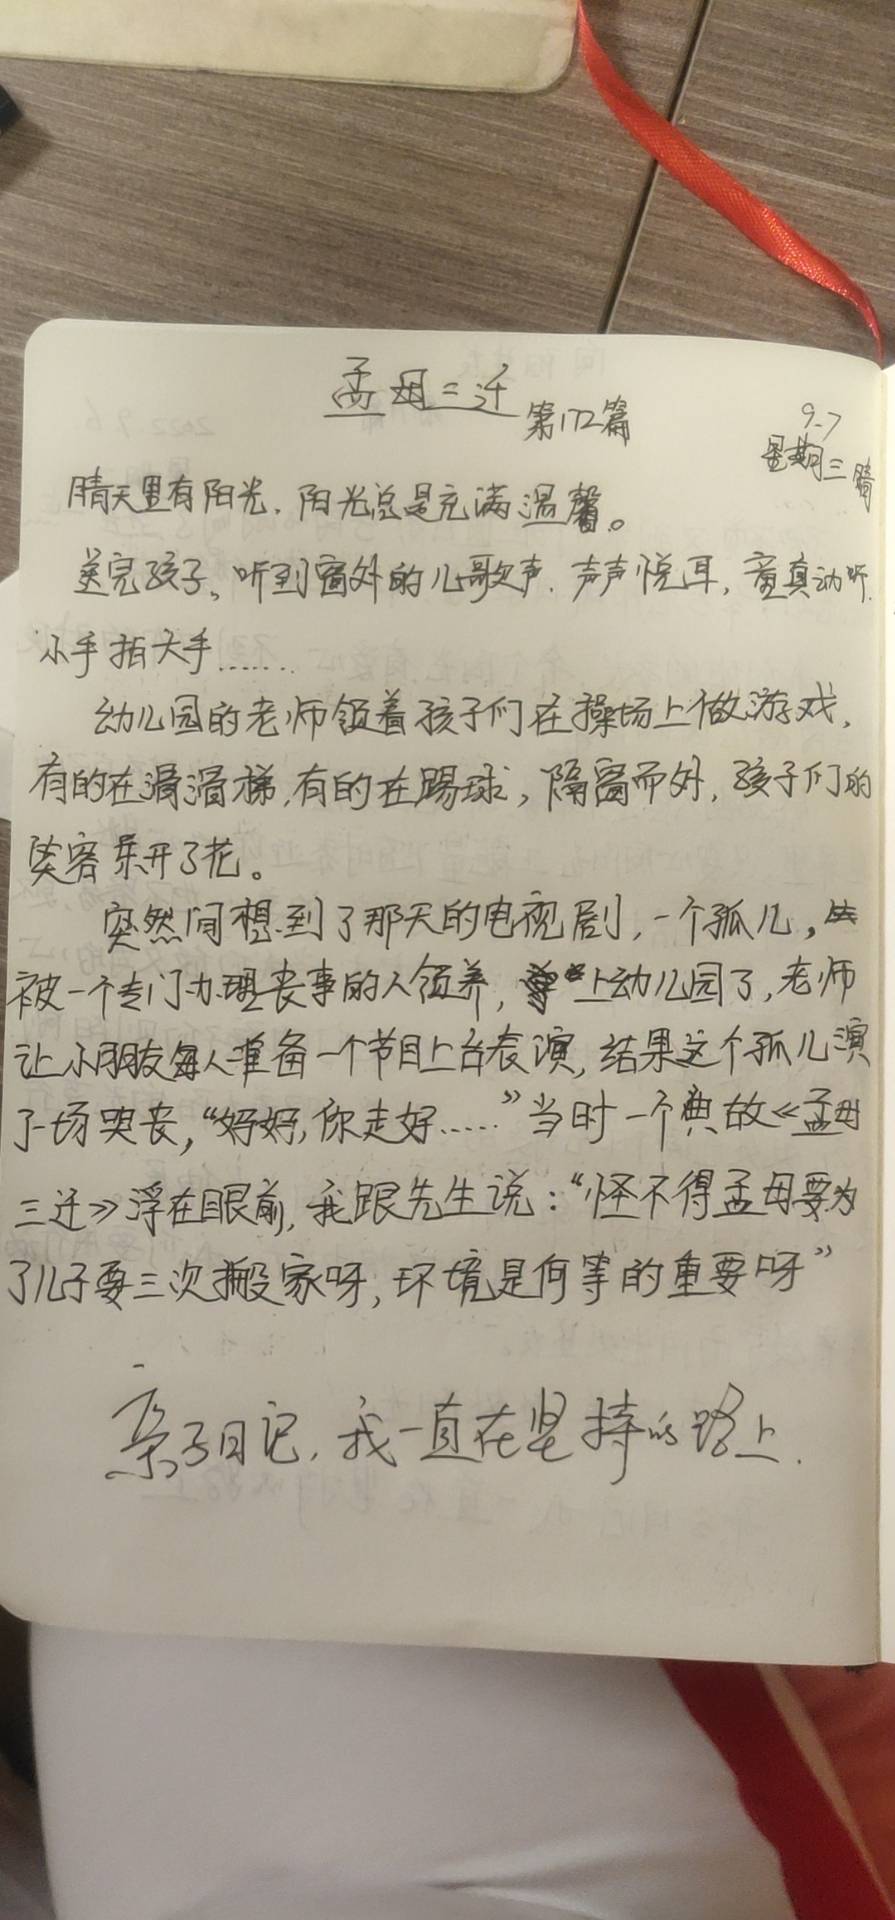 孟母三迁
第172篇
9.7
星期三 晴
晴天里有阳光，阳光总是充满温馨。
送完孩子，听到窗外的儿歌声，声声悦耳，童真动听，
小手拍大手……
幼儿园的老师领着孩子们在操场上做游戏，
有的在滑滑梯，有的在踢球，隔窗而外，孩子们的
笑容乐开了花。
突然间想到了那天的电视剧，一个孤儿，
被一个专门办理丧事的人领养，上幼儿园了，老师
让小朋友每人准备一个节目上台表演，结果这个孤儿演
了一场哭丧，“好好，你走好……”当时一个典故《孟母
三迁》浮在眼前，我跟先生说：“怪不得孟母要为
了儿子要三次搬家呀，环境是何等的重要呀”
亲子日记，我一直在坚持的路上.